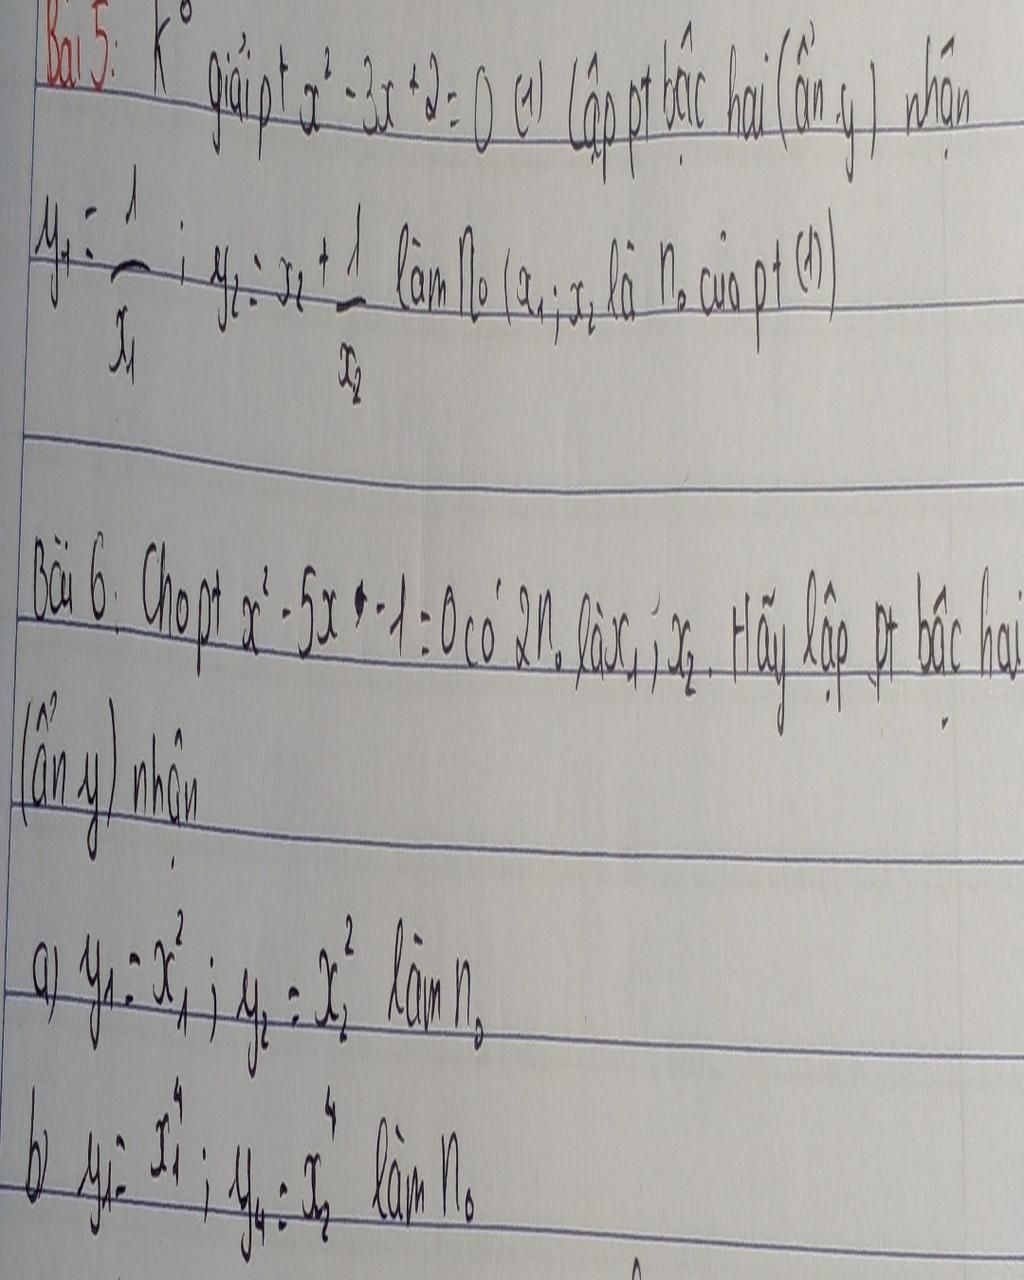 Bài 5: K⁰ giải pt x² - 3x + 2 = 0 (1) Lập pt bậc hai (ẩn y) nhận
y₁ = 1/x₁ ; y₂ = x₂ + 1/x₂ làm n₀ (x₁ ; x₂ là n₀ của pt (1))
Bài 6. Cho pt x² - 5x - 1 = 0 có 2 n₀ là x₁ ; x₂. Hãy lập pt bậc hai
(ẩn y) nhận
a) y₁ = x₁² ; y₂ = x₂² làm n₀
b) y₁ = x₁⁴ ; y₄ = x₂⁴ làm n₀